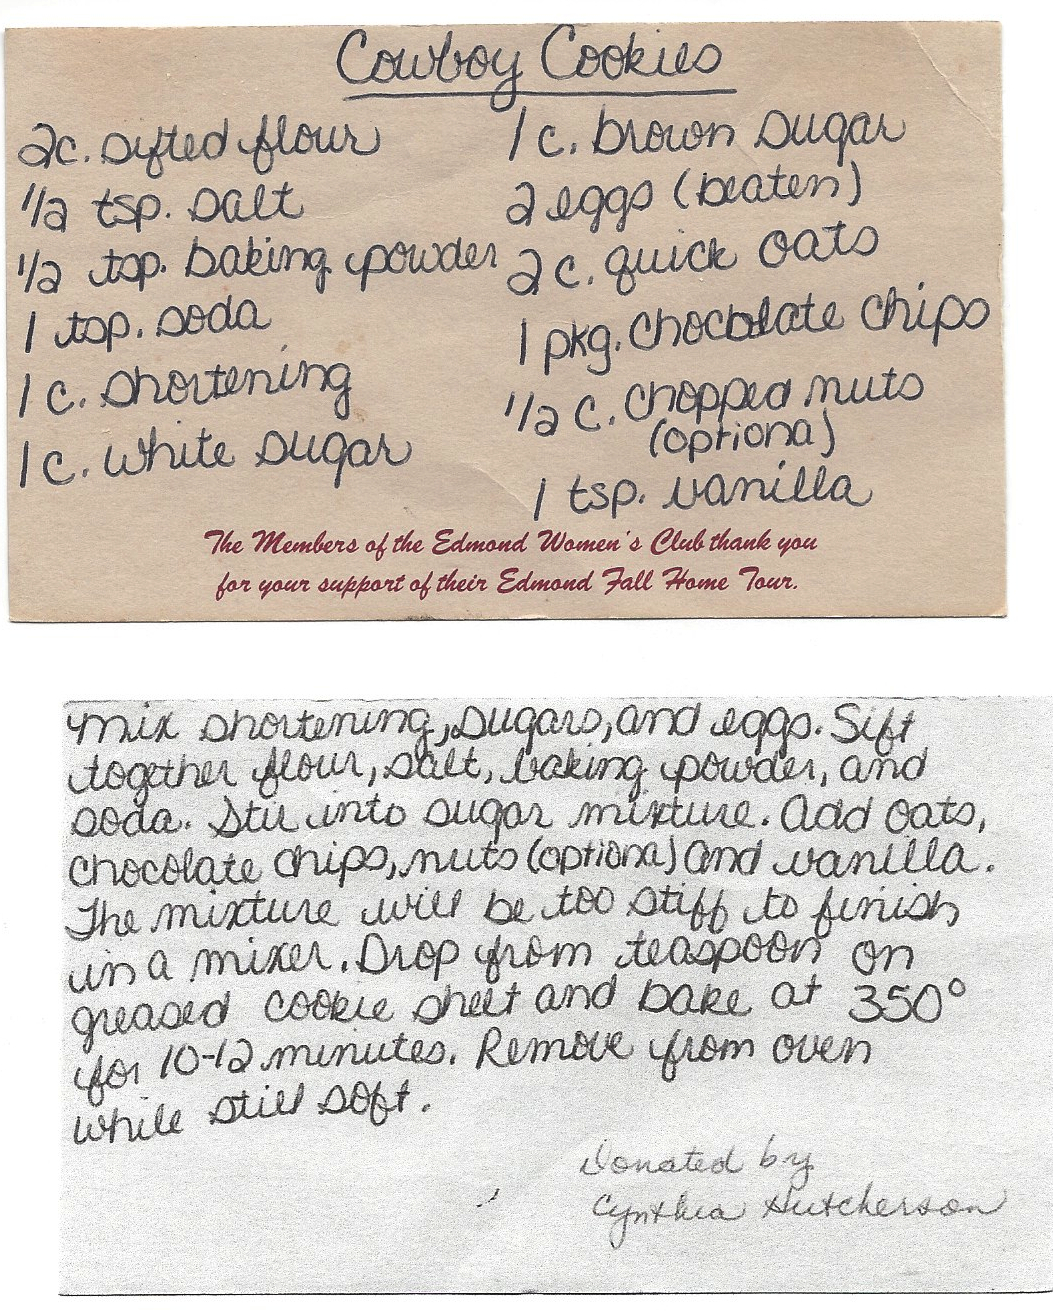 Cowboy Cookies
2c. sifted flour
1/2 tsp. salt
1/2 tsp. baking powder
1 tsp. soda
1 c. shortening
1 c. white sugar
1 c. brown sugar
2 eggs (beaten)
2 c. quick oats
1 pkg. chocolate chips
1/2 c. chopped nuts
(optional)
1 tsp. vanilla
The Members of the Edmond Women's Club thank you
for your support of their Edmond Fall Home Tour.
Mix shortening, sugars, and eggs. Sift
together flour, salt, baking powder, and
soda. Stir into sugar mixture. Add oats,
chocolate chips, nuts (optional) and vanilla.
The mixture will be too stiff to finish
in a mixer. Drop from teaspoon on
greased cookie sheet and bake at 350°
for 10-12 minutes. Remove from oven
while still soft.
Donated by
Cynthia Hutcherson